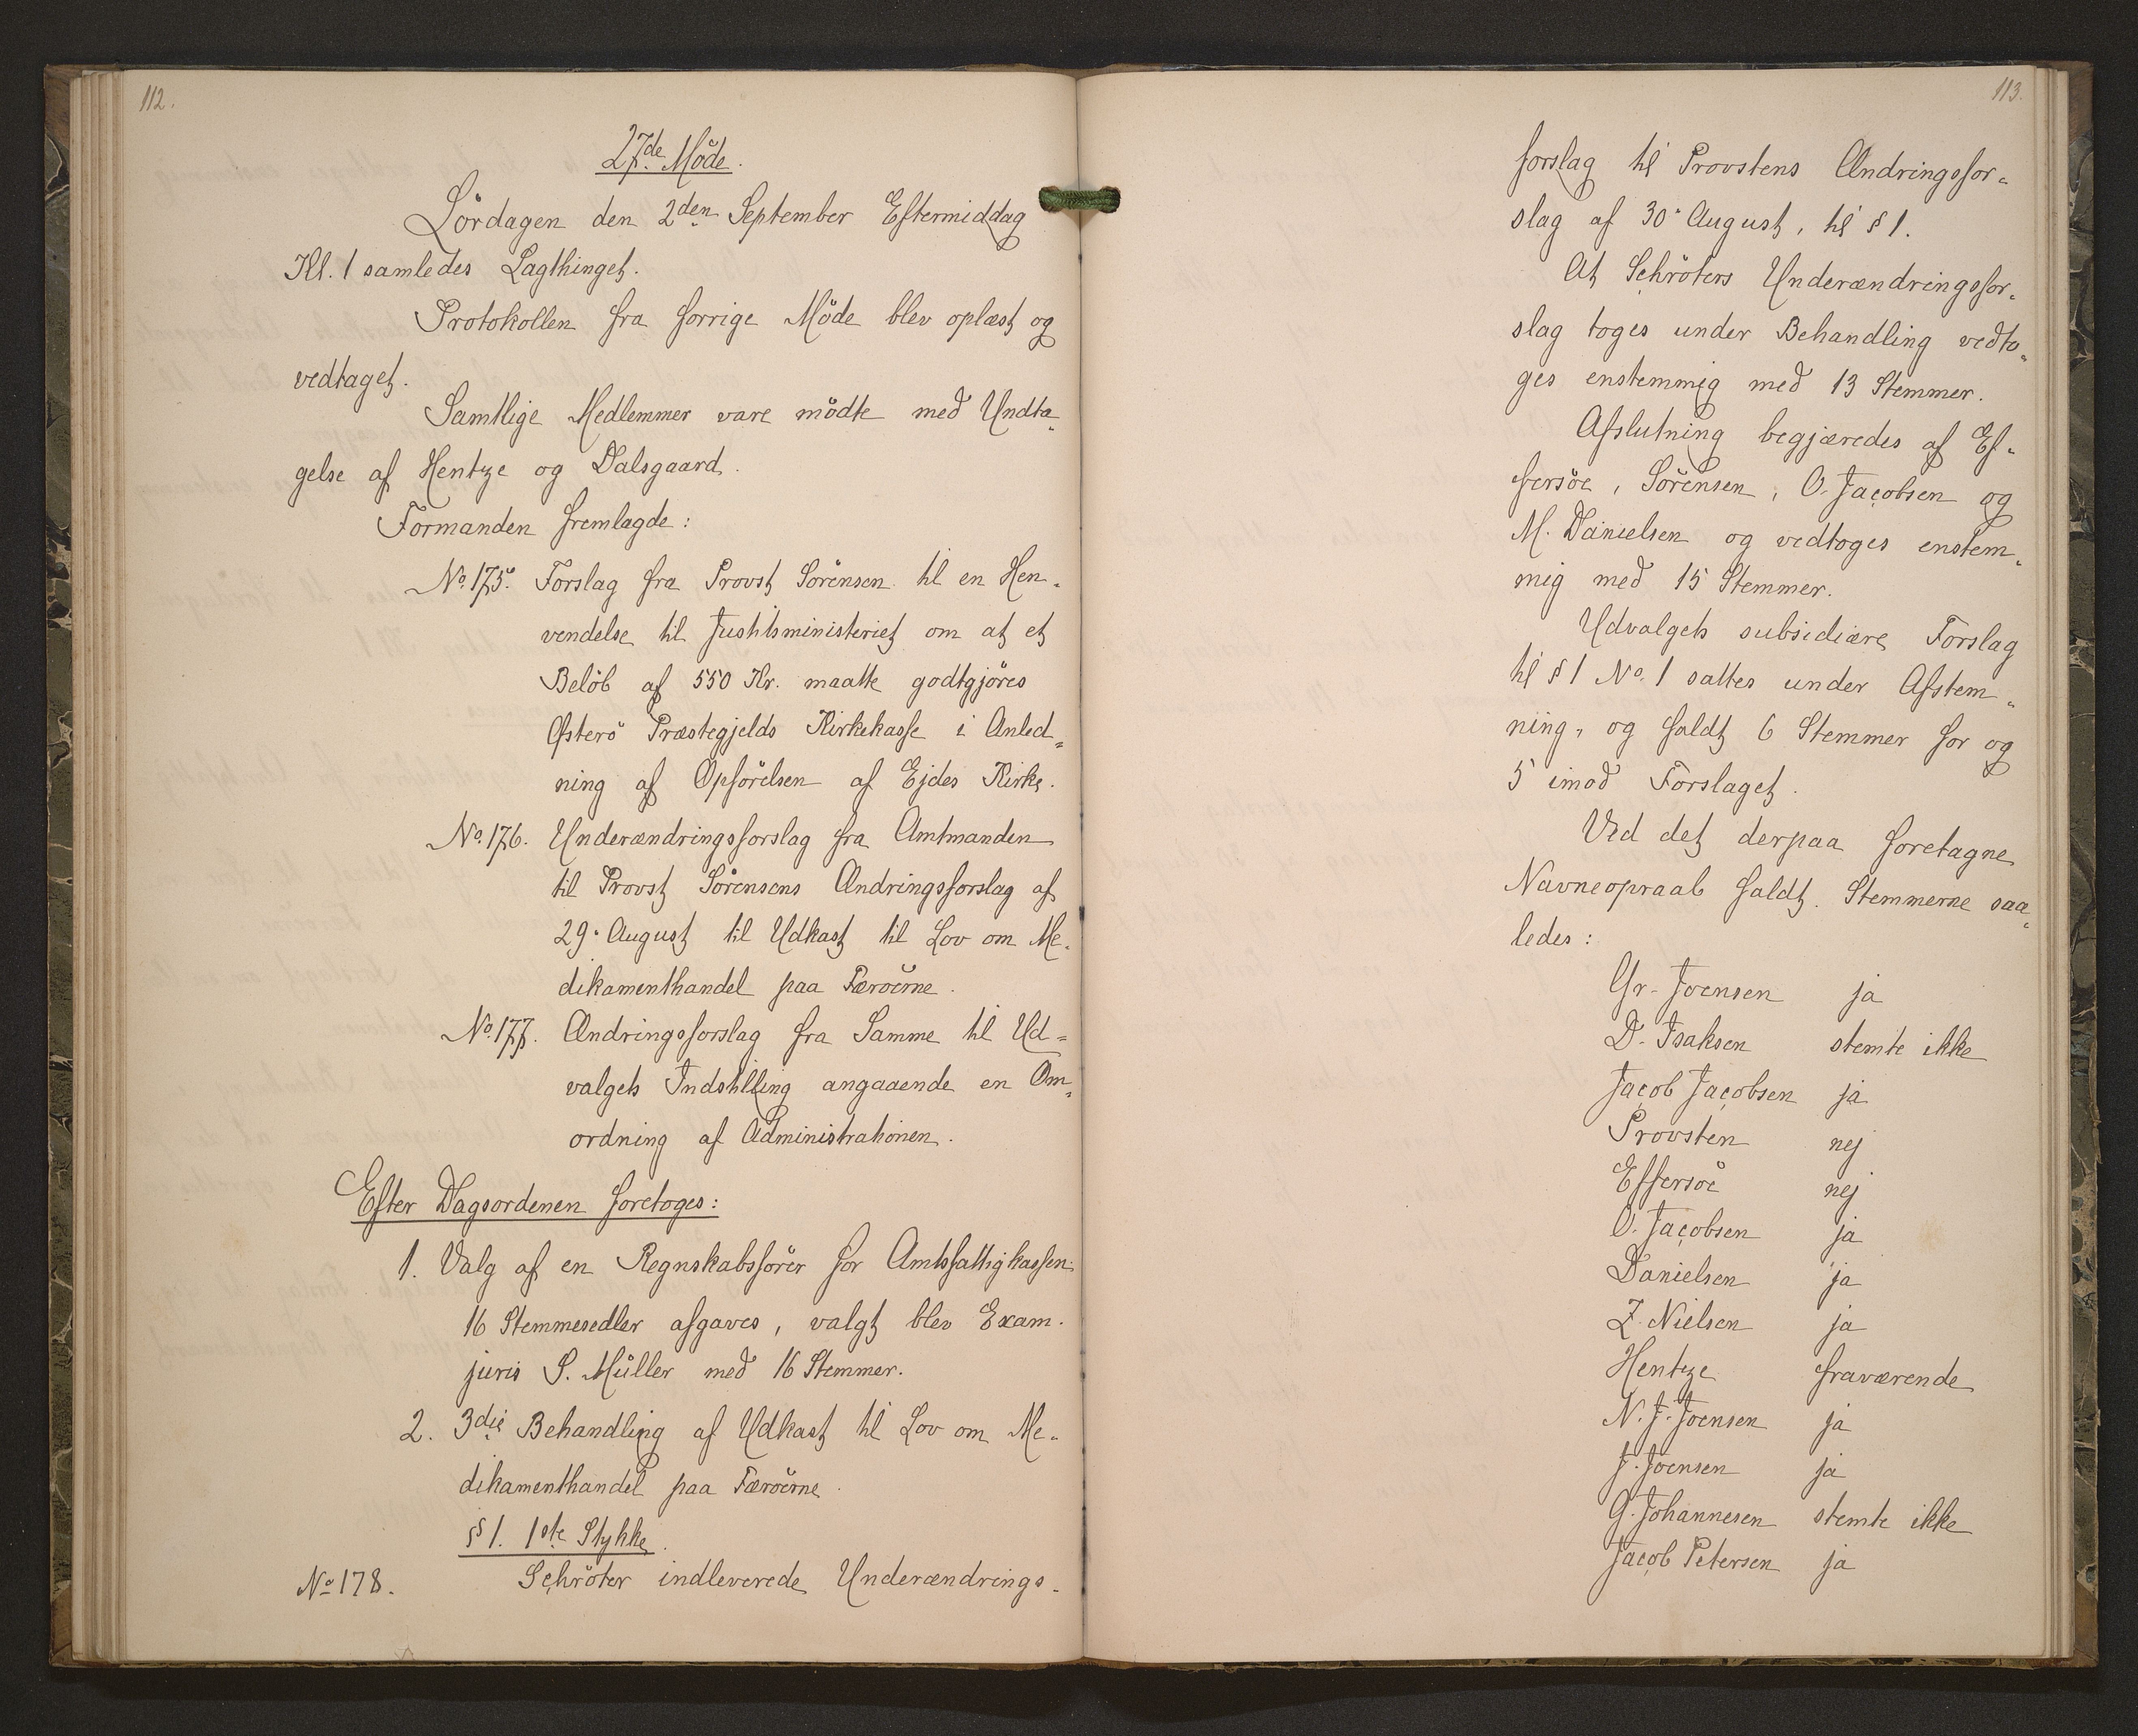 112.
27de Möde.
Lördagen den 2den September Eftermiddag
Kl. 1 samledes Lagthinget.
Protokollen fra forrige Möde blev oplæst og
vedtaget.
Samtlige Medlemmer vare mödte med Undta-
gelse af Hentze og Dalsgaard.
Formanden fremlagde:
No. 175. Forslag fra Provst Sörensen til en Hen-
vendelse til Justitsministeriet om at et
Belöb af 550 Kr. maatte godtgjöres
Österö Præstegjelds Kirkekasse i Anled-
ning af Opförelsen af Ejdes Kirke.
No. 176. Underændringsforslag fra Amtmanden
til Provst Sörensens Ændringsforslag af
29. August til Udkast til Lov om Me-
dikamenthandel paa Færöerne.
No. 177. Ændringsforslag fra Samme til Ud-
valgets Indstilling angaaende en Om-
ordning af Administrationen.
Efter Dagsordenen foretoges:
1. Valg af en Regnskabsförer for Amtsfattigkassen.
16 Stemmesedler afgaves, valgt blev Exam.
juris S. Müller med 16 Stemmer.
2. 3die Behandling af Udkast til Lov om Me-
dikamenthandel paa Færöerne.
§ 1. 1ste Stykke.
No 178. Schröter indleverede Underændrings-
113.
forslag til Provstens Ændringsfor-
slag af 30. August, til § 1.
At Schröters Underændringsfor-
slag toges under Behandling vedto-
ges enstemmig med 13 Stemmer.
Afslutning begjæredes af Ef-
fersöe, Sörensen, O. Jacobsen og
M. Danielsen og vedtoges enstem-
mig med 15 Stemmer.
Udvalgets subsidiære Forslag
til § 1 No. 1 sattes under Afstem-
ning, og faldt 6 Stemmer for og
5 imod Forslaget.
Ved det derpaa foretagne
Navneopraab faldt Stemmerne saa-
ledes:
Gr. Joensen ja
D. Isaksen stemte ikke
Jacob Jacobsen ja
Provsten nej
Effersöe nej
O. Jacobsen ja
Danielsen ja
Z. Nielsen ja
Hentze fraværende
N. J. Joensen ja
J. Joensen ja
G. Johannesen stemte ikke
Jacob Petersen ja